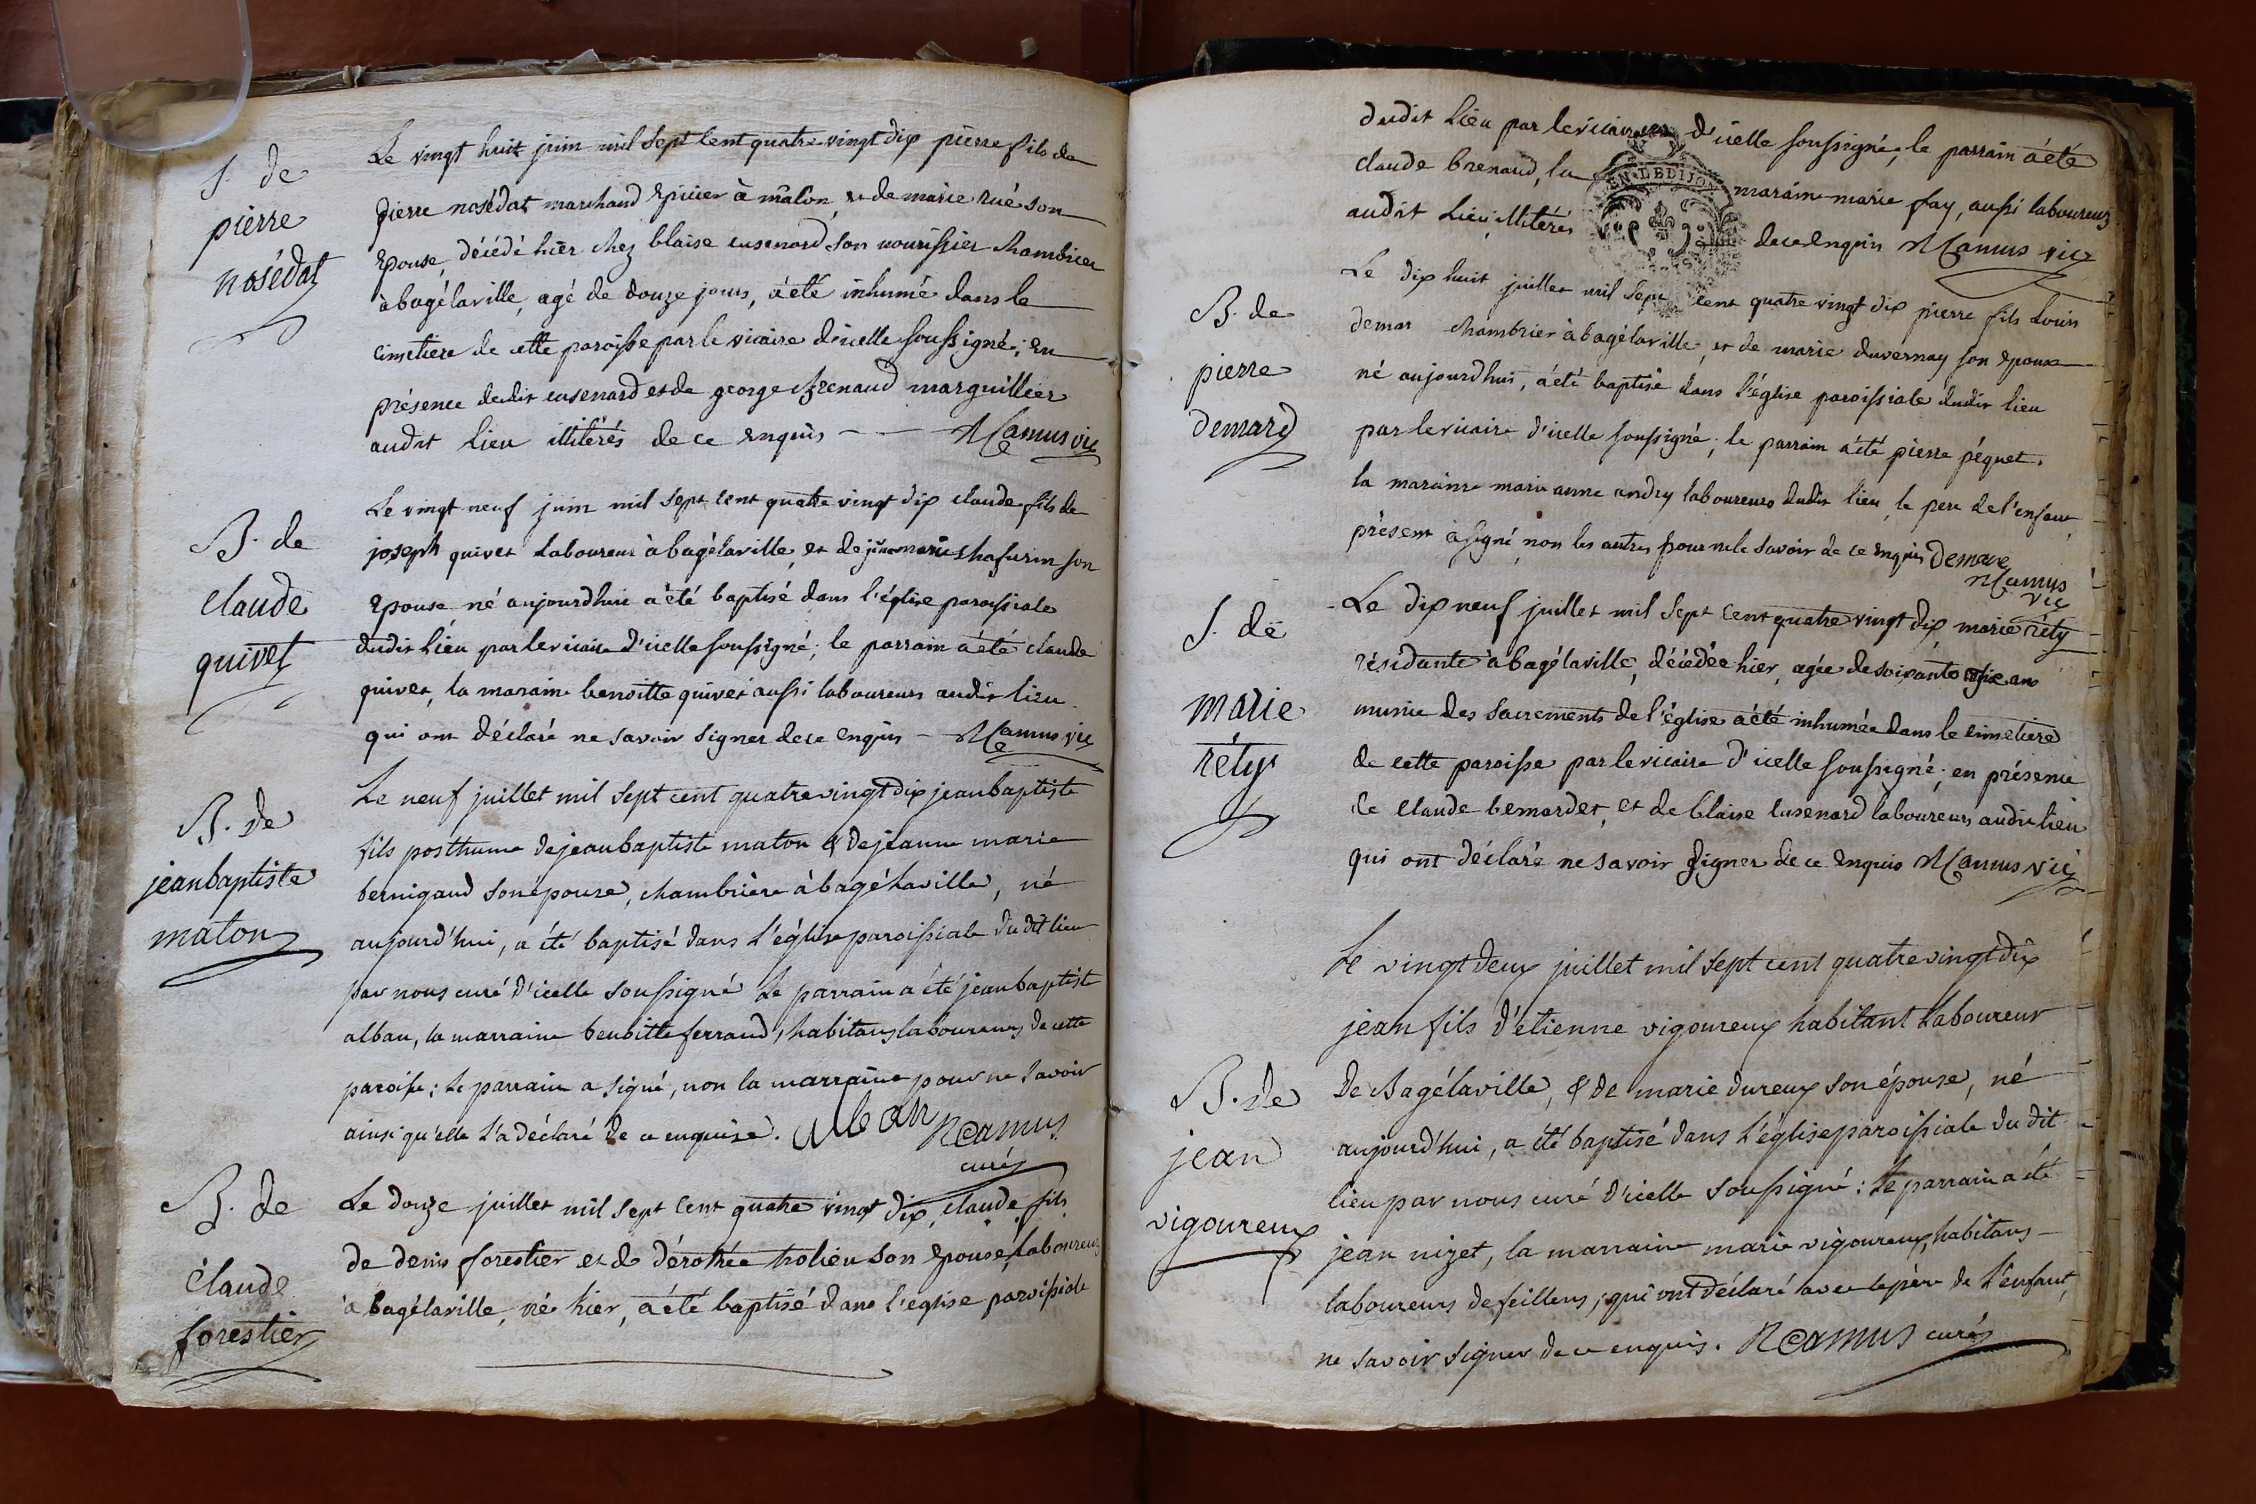 S. de
pierre
nosédat
Le vingt huit juin mil sept cent quatre vingt dix pierre fils de
pierre nosédat marchand epicier à mâcon, et de marie rué son
epouse, décédé hier chez blaise cusenard son nourissier chambrier
à bagélaville, agé de douze jours, a été inhumé dans le
cimetiere de cette paroisse par le vicaire d'icelle soussigné; en
présence dudit cusenard et de george brenaud marguillier
audit lieu illiterés de ce enquis NCamus vic
B. de
claude
quivet
Le vingt neuf juin mil sept cent quatre vingt dix claude fils de
joseph quivet laboureur à bagélaville, et de jne marie chafurin son
epouse né aujourdhui a été baptisé dans l'église paroissiale
dudit lieu par le vicaire d'icelle soussigné; le parrain a été claude
quivet, la maraine benoitte quivet aussi laboureurs audit lieu
qui ont déclaré ne savoir signer de ce enquis NCamus vic
B. de
jean baptiste
maton
Le neuf juillet mil sept cent quatre vingt dix jean baptiste
fils posthume de jean baptiste maton & de jeanne marie
bernigaud son épouse, chambrière à bagé laville, né
aujourd'hui, a été baptisé dans l'église paroissiale du dit lieu
par nous curé d'icelle soussigné le parrain a été jean baptiste
alban, la marraine benoitte ferraud, habitans laboureurs de cette
paroisse: le parrain a signé, non la marraine pour ne savoir
ainsi qu'elle l'a déclaré de ce enquise. alban NCamus
curé
B. de
claude
forestier
Le douze juillet mil sept cent quatre vingt dix, claude fils
de denis forestier et de dérothée tholieu son epouse, laboureurs
à bagélaville, né hier, a été baptisé dans l'église paroissiale
dudit lieu par le vicaire d'icelle soussigné, le parrain a été
claude brenaud, la maraine marie fay, aussi laboureurs
audit lieu, illiterés de ce enquis NCamus vic
EN. LEDIJON
B. de
pierre
demard
Le dix huit juillet mil sept cent quatre vingt dix pierre fils louis
demar chambrier à bagélaville, et de marie duvernay son epouse
né aujourdhui, a été baptisé dans l'église paroissiale dudit lieu
par le vicaire d'icelle soussigné; le parrain a été pierre péquet.
la maraine marianne andry laboureurs dudit lieu, le pere de l'enfant
présent a signé, non les autres pour ne le savoir de ce enquis demare
NCamus
vic
S. de
marie
réty
Le dix neuf juillet mil sept cent quatre vingt dix marie réty
résidante à bagélaville, décédée hier, agée de soixante six ans
munie des sacrements de l'église a été inhumée dans le cimetiere
de cette paroisse par le vicaire d'icelle soussigné; en présence
de claude bernardet, et de blaise cusenard laboureurs audit lieu
qui ont déclaré ne savoir signer de ce enquis NCamus vic
B. de
jean
vigoureux
Le vingt deux juillet mil sept cent quatre vingt dix
jean fils d'etienne vigoureux habitant laboureur
de Bagélaville, & de marie dureux son épouse, né
aujourd'hui, a été baptisé dans l'église paroissiale du dit
lieu par nous curé d'icelle soussigné: le parrain a été
jean nizet, la marraine marie vigoureux, habitans
laboureurs de feillens, qui ont déclaré avec le père de l'enfant,
ne savoir signer de ce enquis. NCamus curé